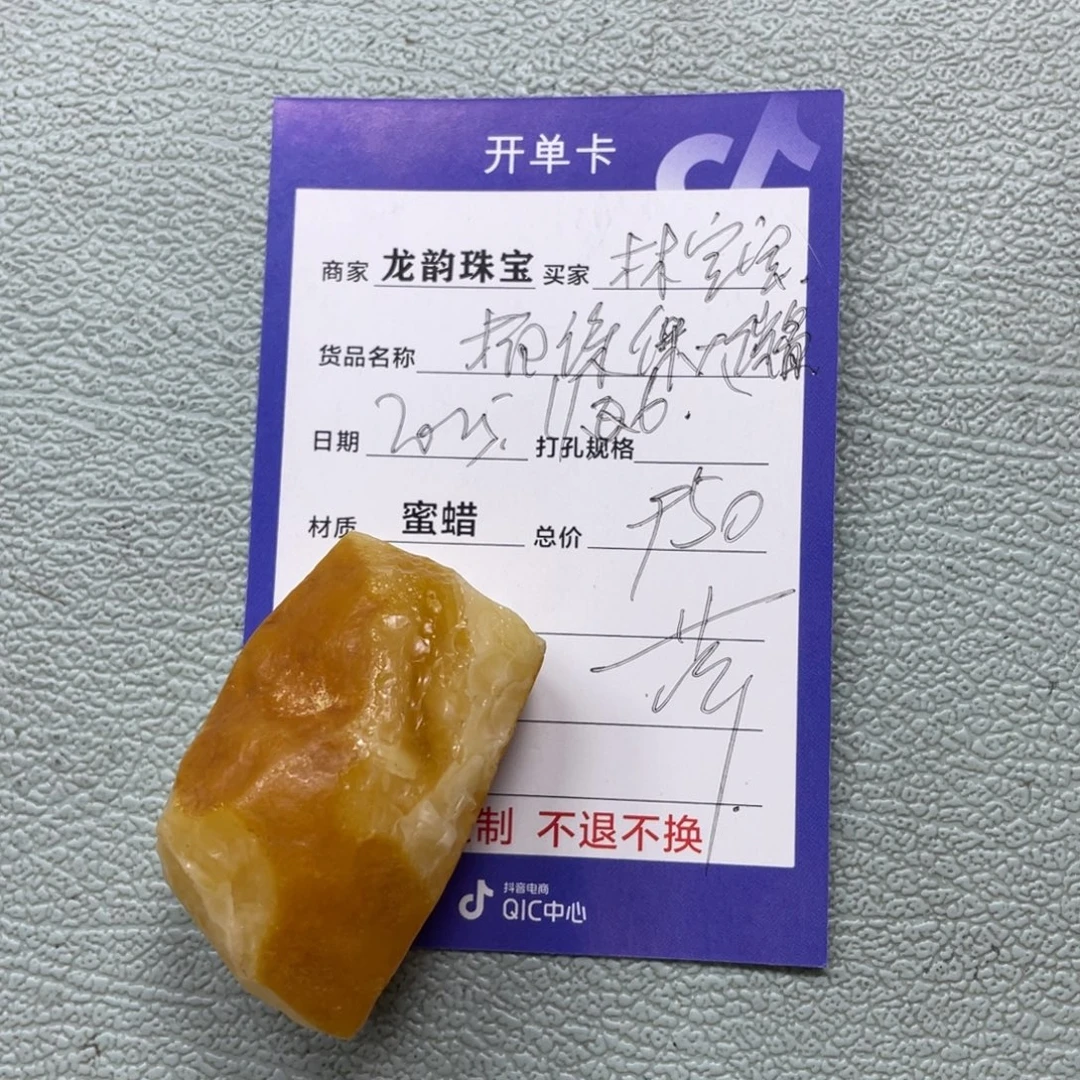 开单卡
商家 龙韵珠宝 买家 林宝宝
货品名称
日期 2025. 11.26. 打孔规格
材质 蜜蜡 总价 950
制 不退不换
抖音电商
QIC中心